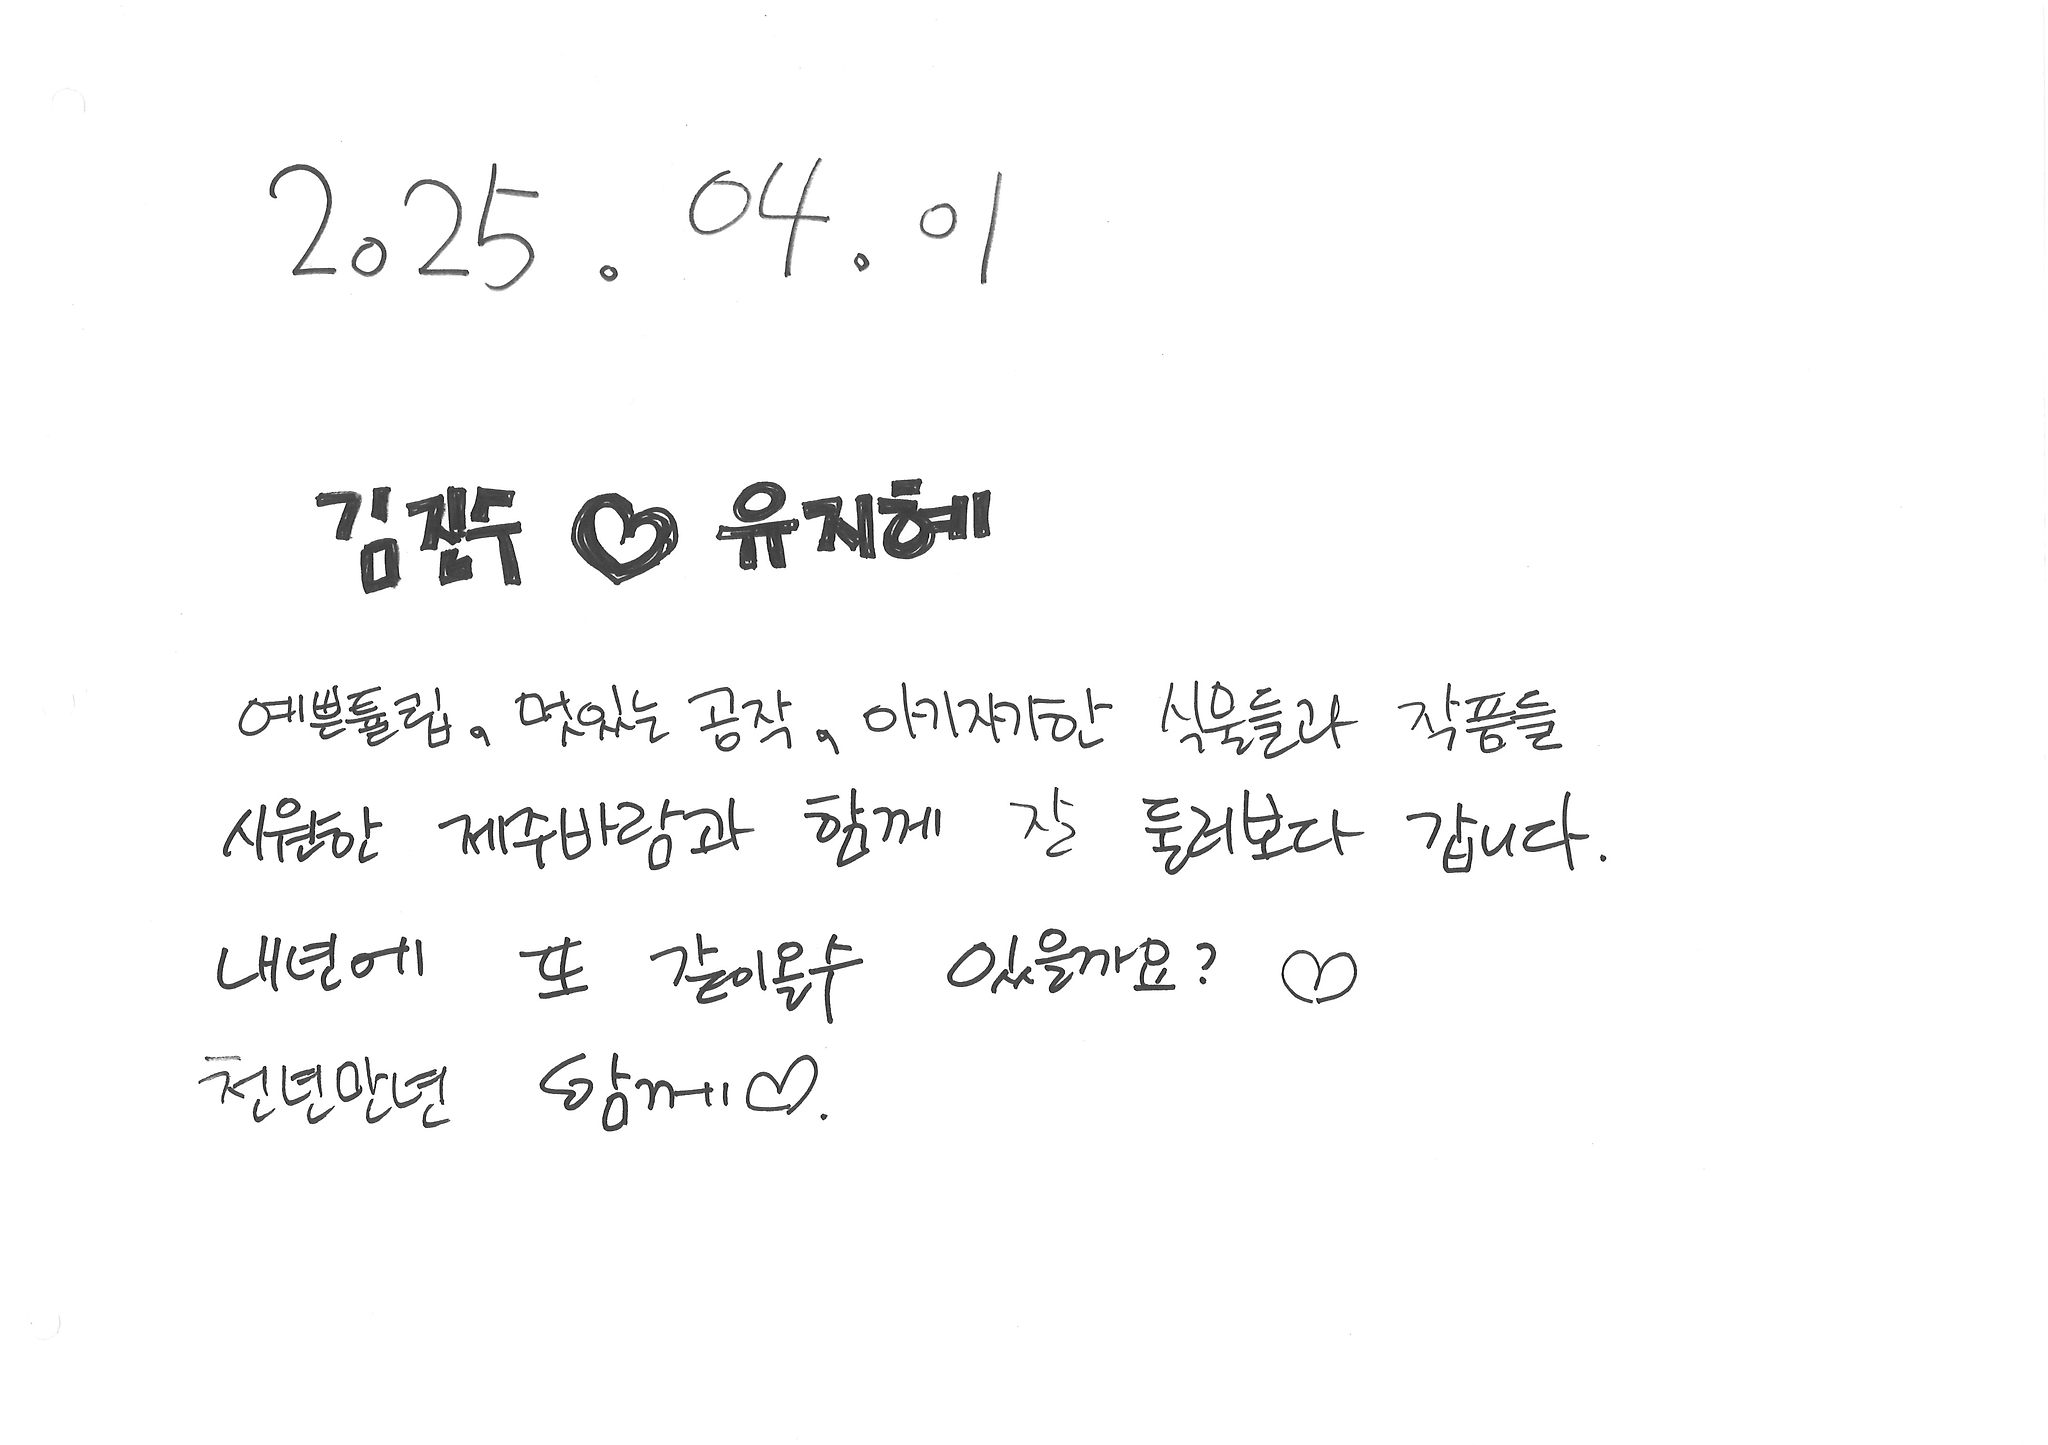 2025. 04. 01
김진수 ♡ 유지혜
예쁜튤립, 멋있는 공작, 아기자기한 식물들과 작품들
시원한 제주바람과 함께 잘 둘러보다 갑니다.
내년에 또 같이올수 있을까요? ♡
천년만년 함께♡.